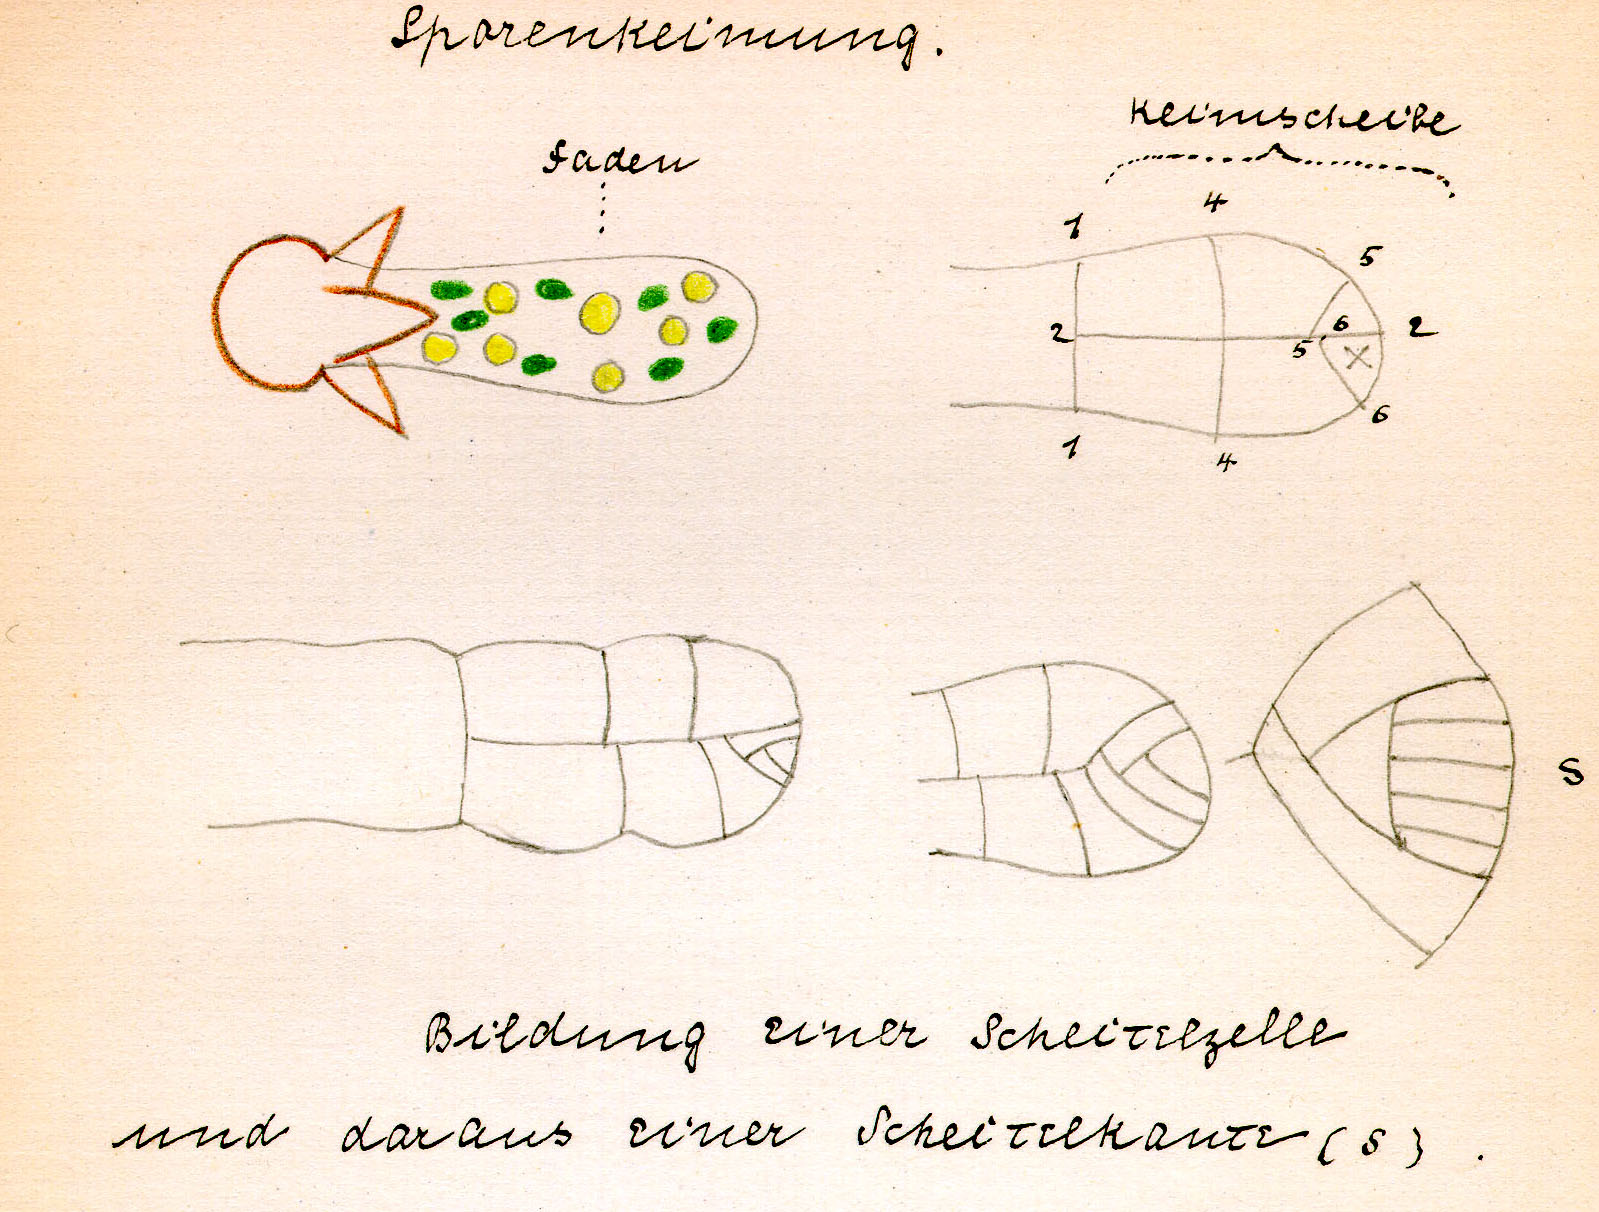 Sporenkeimung.
Faden
Keimscheibe
1 4 5
2 5 6 2
6
1 4
S
Bildung einer Scheitelzelle
und daraus einer Scheitelkante (S).